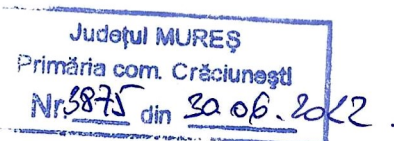 Județul MUREȘ
Primăria com. Crăciunești
Nr. 3875 din 30.06.2022.